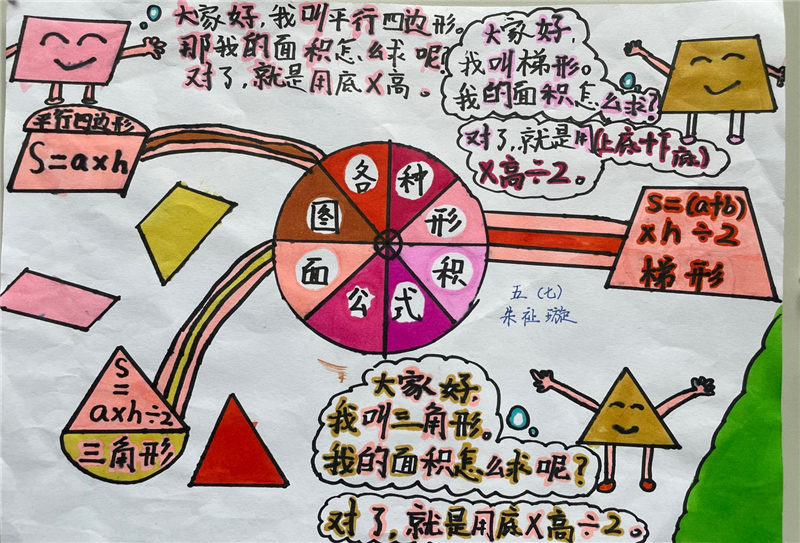 大家好，我叫平行四边形。
那我的面积怎么求呢？
对了，就是用底×高。
大家好
我叫梯形。
我的面积怎么求？
对了，就是用(上底+下底)
×高÷2。
平行四边形
S=a×h
各种
图形
面积
公式
S=(a+b)
×h÷2
梯形
五(七)
朱祉璇
S
=
a×h÷2
三角形
大家好，
我叫三角形。
我的面积怎么求呢？
对了，就是用底×高÷2。